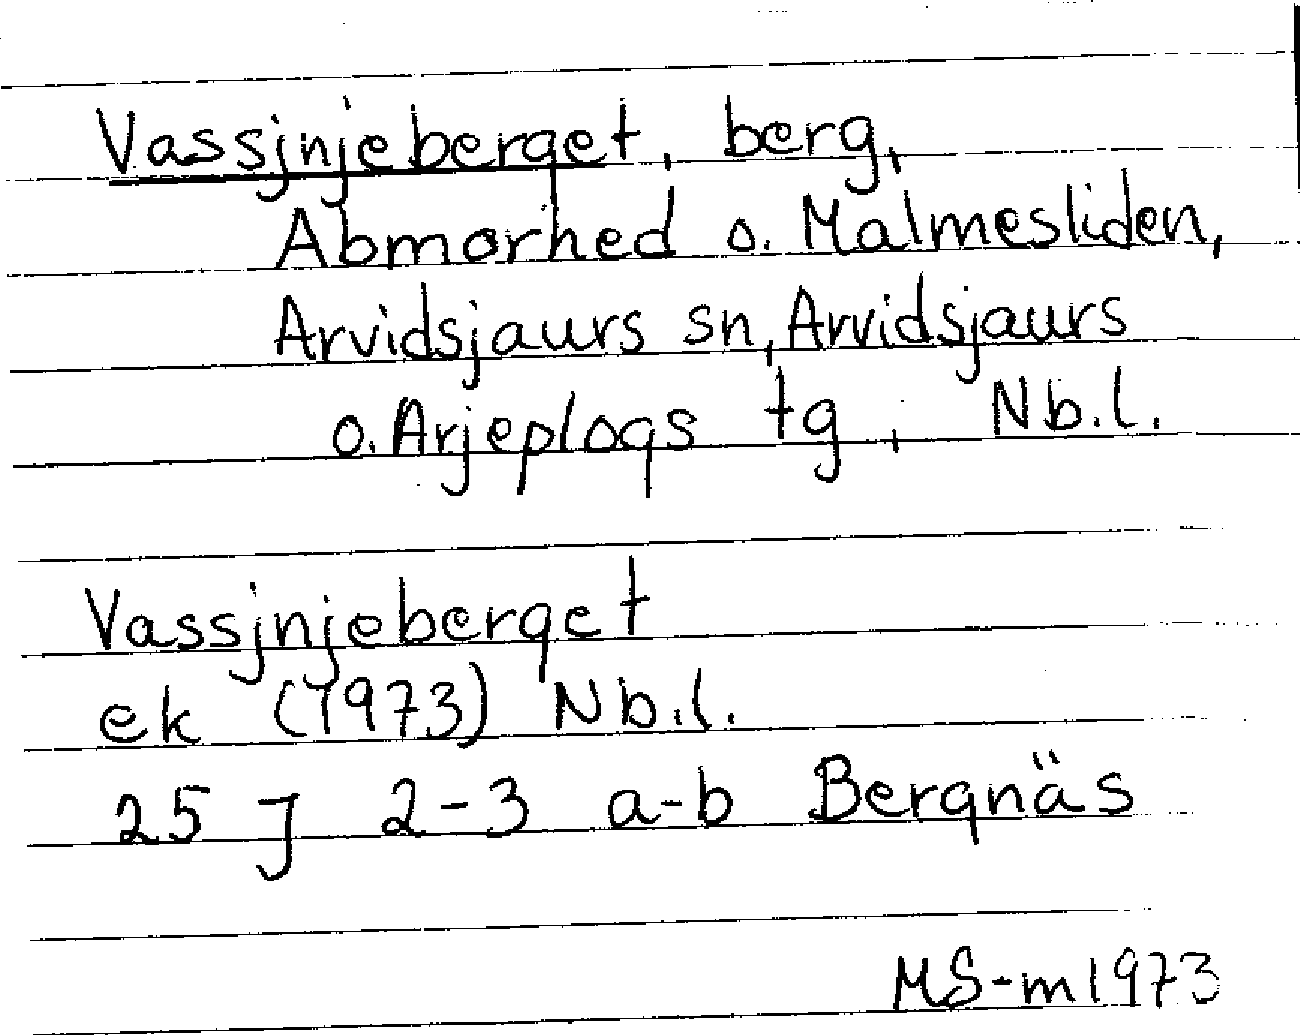 Vassjnjeberget, berg,
Abmorhed o. Malmesliden,
Arvidsjaurs sn, Arvidsjaurs
o. Arjeplogs tg, Nb.l.
Vassjnjeberget
ek (1973) Nb.l.
25 J 2-3 a-b Bergnäs
MS-m1973